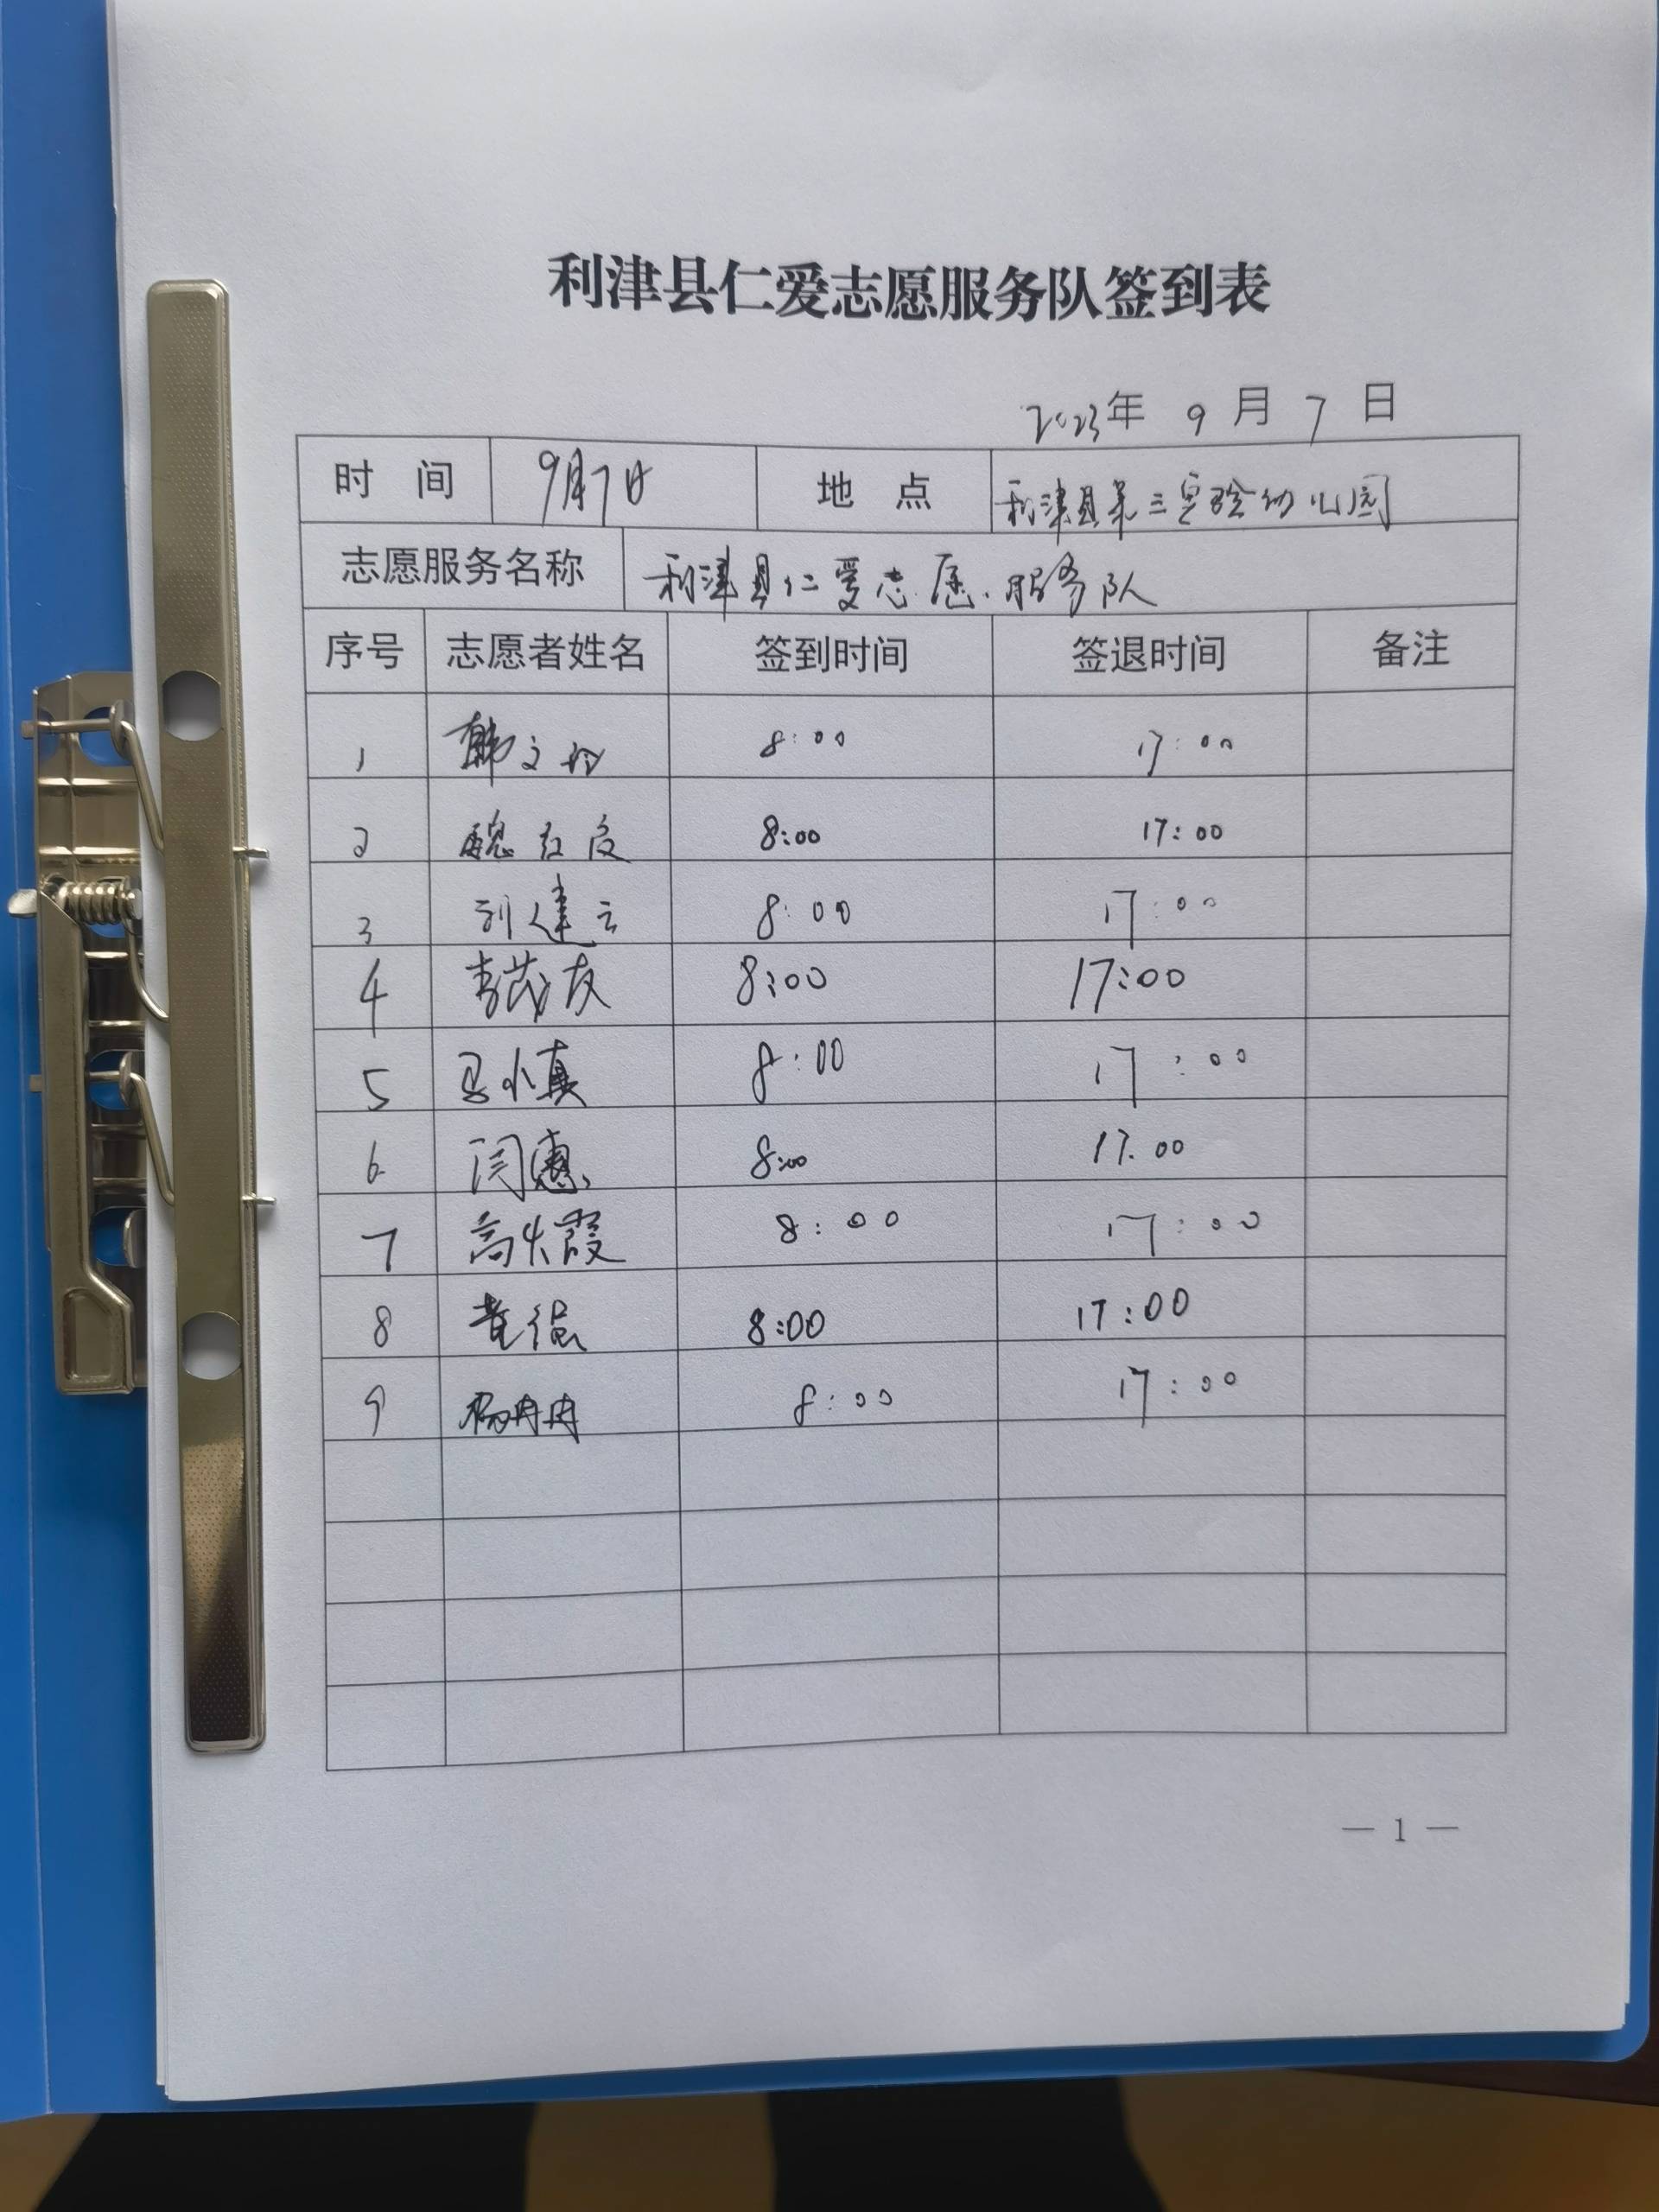 利津县仁爱志愿服务队签到表
2023年 9 月 7 日
时 间 9月7日 地 点 利津县第三实验幼儿园
志愿服务名称 利津县仁爱志愿服务队
序号 志愿者姓名 签到时间 签退时间 备注
1 韩文 8:00 17:00
2 魏 8:00 17:00
3 刘建云 8:00 17:00
4 李茂友 8:00 17:00
5 8:00 17:00
6 闫惠 8:00 17.00
7 高 霞 8:00 17:00
8 黄强 8:00 17:00
9 杨冉冉 8:00 17:00
— 1 —